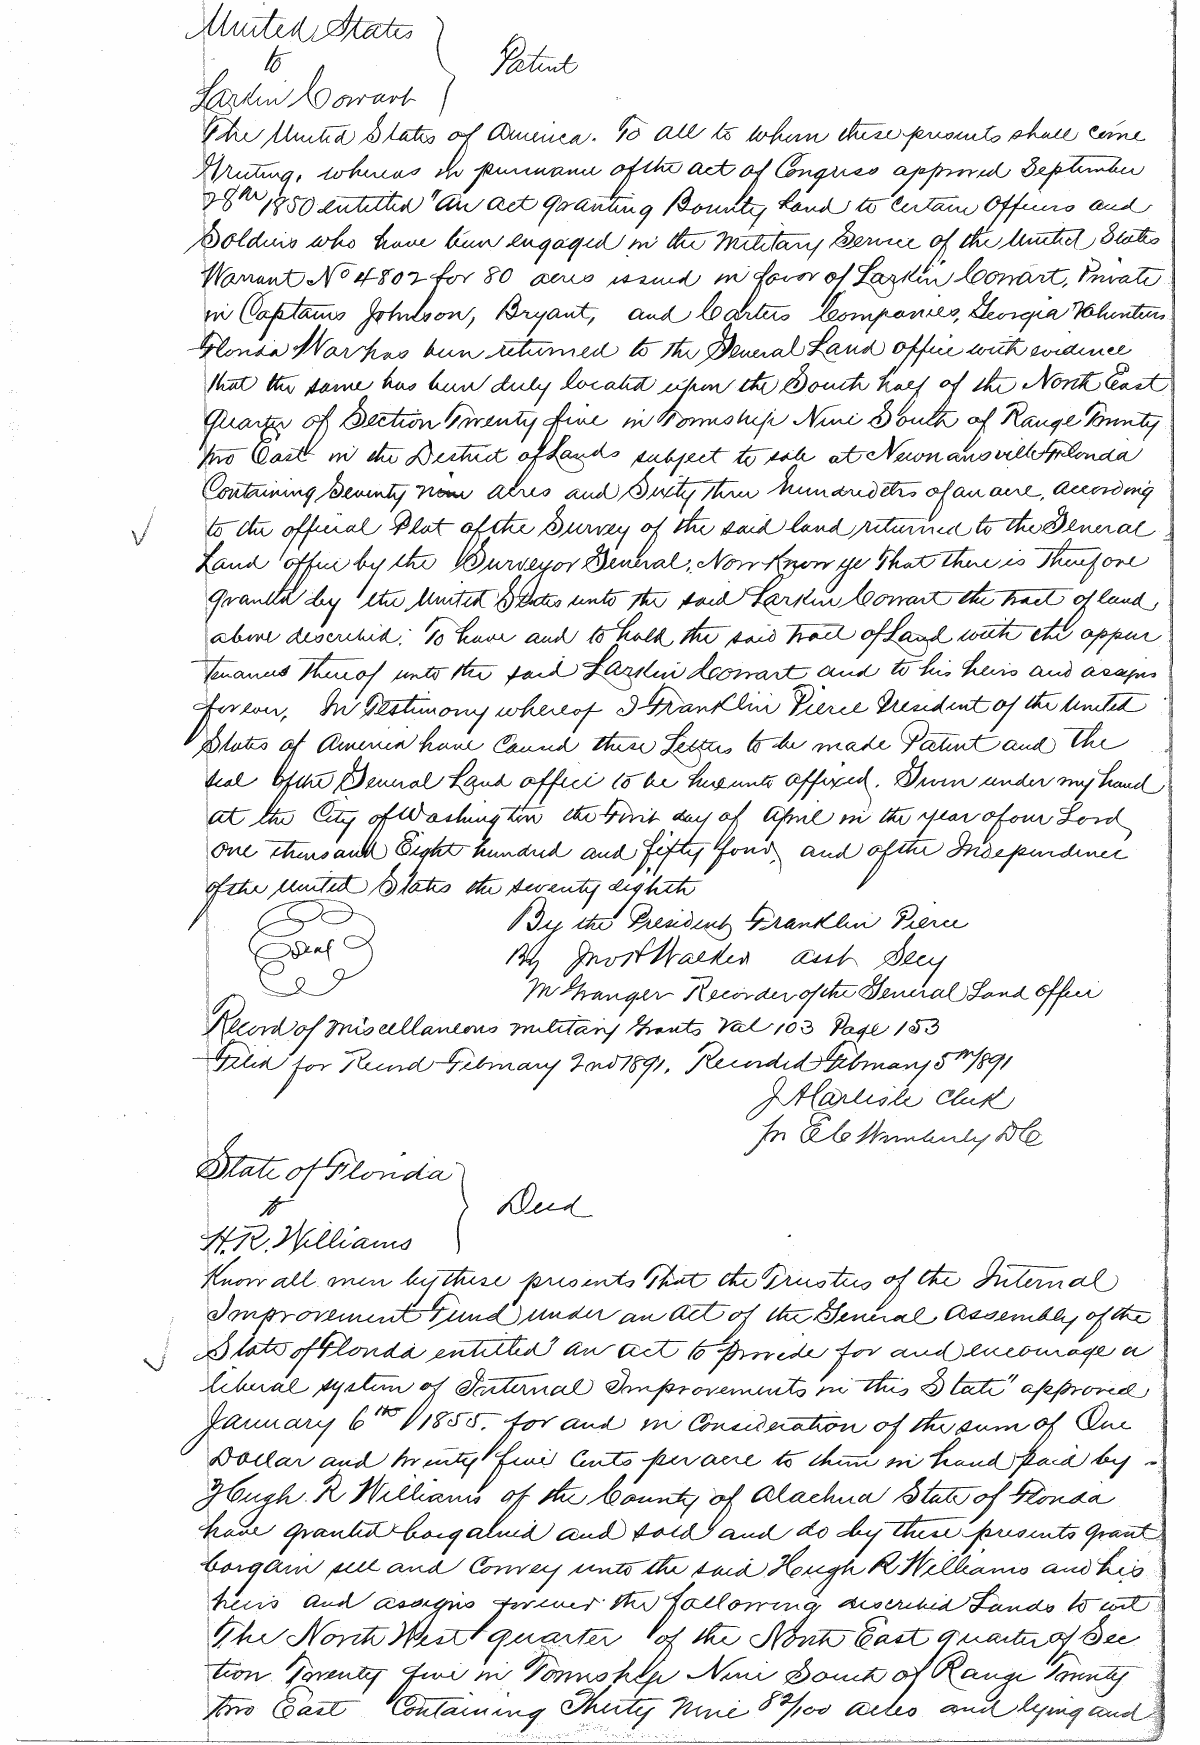 United States
to
Patent
Larkin Cowart
The United States of America. To all to whom these presents shall come
Greeting, whereas in pursuance of the act of Congress approved September
28th 1850 entitled "An act granting Bounty Land to Certain Officers and
Soldiers who have been engaged in the Military Service of the United States
Warrant No 4802 for 80 acres issued in favor of Larkin Cowart, Private
in Captains Johnson, Bryant, and Carters Companies, Georgia Volunteers
Florida War has been returned to the General Land office with evidence
that the same has been duly located upon the South half of the North East
Quarter of Section Twenty five in Township Nine South of Range Twenty
two East in the District of Lands subject to sale at Newnansville Florida
Containing Seventy nine acres and Sixty three hundredths of an acre, according
to the official Plat of the Survey of the said land returned to the General
Land office by the Surveyor General, Now Know ye That there is Therefore
granted by the United States unto the said Larkin Cowart the tract of land
above described: To have and to hold the said tract of Land with the appur
tenances thereof unto the said Larkin Cowart and to his heirs and assigns
forever, In Testimony whereof I Franklin Pierce President of the United
States of America have Caused these Letters to be made Patent and the
seal of the General Land office to be hereunto affixed. Given under my hand
at the City of Washington the First day of April in the year of our Lord
one thousand Eight hundred and fifty four, and of the Independence
of the United States the seventy eighth
Seal
By the President Franklin Pierce
By Jno H Walker asst Secy
M Granger Recorder of the General Land office
Record of miscellaneous military Grants Val 103 Page 153
Filed for Record February 2nd 1891. Recorded February 5th 1891
J A Carlisle Clerk
pr E C Wimberly D C
State of Florida
to
Deed
H. R. Williams
Know all men by these presents That the Trustees of the Internal
Improvement Fund under an Act of the General Assembly of the
State of Florida entitled "an act to provide for and encourage a
liberal system of Internal Improvements in this State" approved
January 6th 1855. for and in Consideration of the sum of One
Dollar and twenty five Cents per acre to them in hand paid by
Hugh R Williams of the County of Alachua State of Florida
have granted bargained and sold and do by these presents grant
bargain sell and Convey unto the said Hugh R Williams and his
heirs and assigns forever the following described Lands to wit
The North West quarter of the North East quarter of Sec
tion Twenty five in Township Nine South of Range Twenty
two East Containing Thirty Nine 82/100 acres and lying and